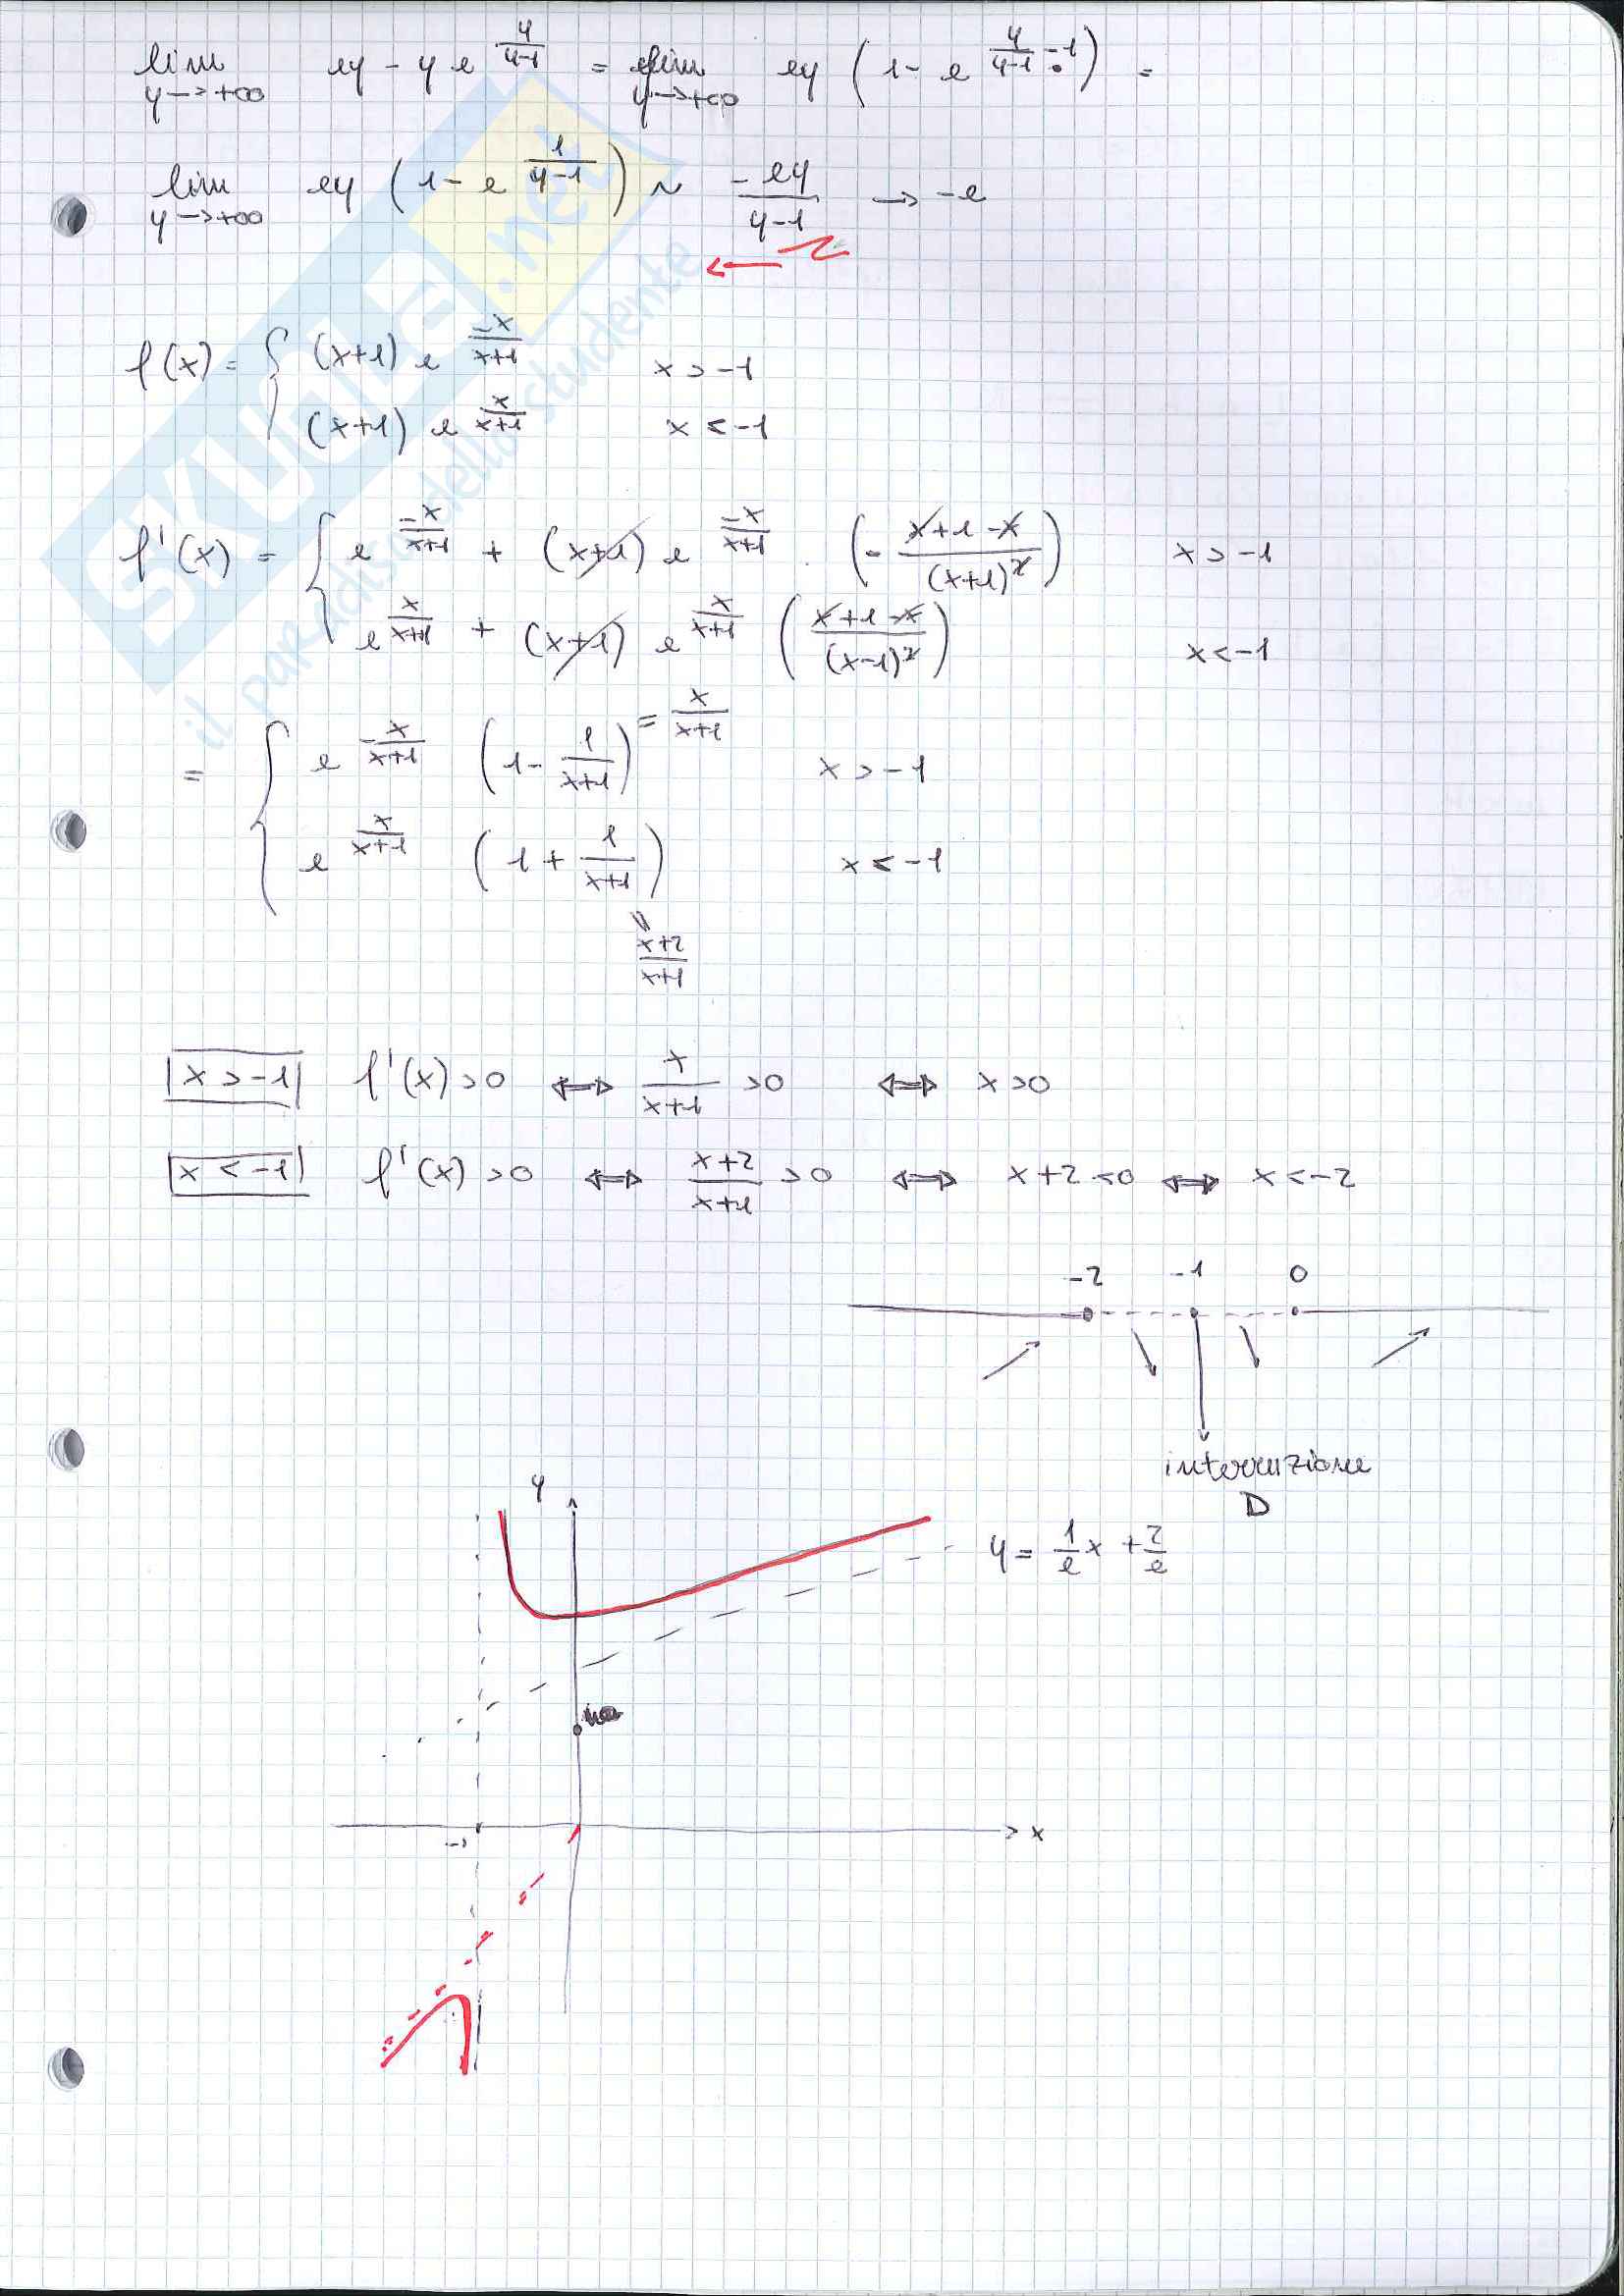 lim y→+∞ ey - y e^{y/(y-1)} = lim y→+∞ ey (1 - e^{y/(y-1) - 1}) =
lim y→+∞ ey (1 - e^{1/(y-1)}) ~ -ey/(y-1) → -e
f(x) = { (x+1) e^{-x/(x+1)} x > -1
(x+1) e^{x/(x+1)} x < -1
f'(x) = { e^{-x/(x+1)} + (x+1) e^{-x/(x+1)} · (- (x+1-x)/(x+1)^2) x > -1
e^{x/(x+1)} + (x+1) e^{x/(x+1)} ((x+1-x)/(x-1)^2) x < -1
= { e^{-x/(x+1)} (1 - 1/(x+1)) = x/(x+1) x > -1
e^{x/(x+1)} (1 + 1/(x+1)) x < -1
= (x+2)/(x+1)
x > -1 f'(x) > 0 ⟺ x/(x+1) > 0 ⟺ x > 0
x < -1 f'(x) > 0 ⟺ (x+2)/(x+1) > 0 ⟺ x+2 < 0 ⟺ x < -2
-2 -1 0
interruzione
D
y
y = 1/e x + 2/e
-1
x
SKUOLA.net
il paradiso dello studente